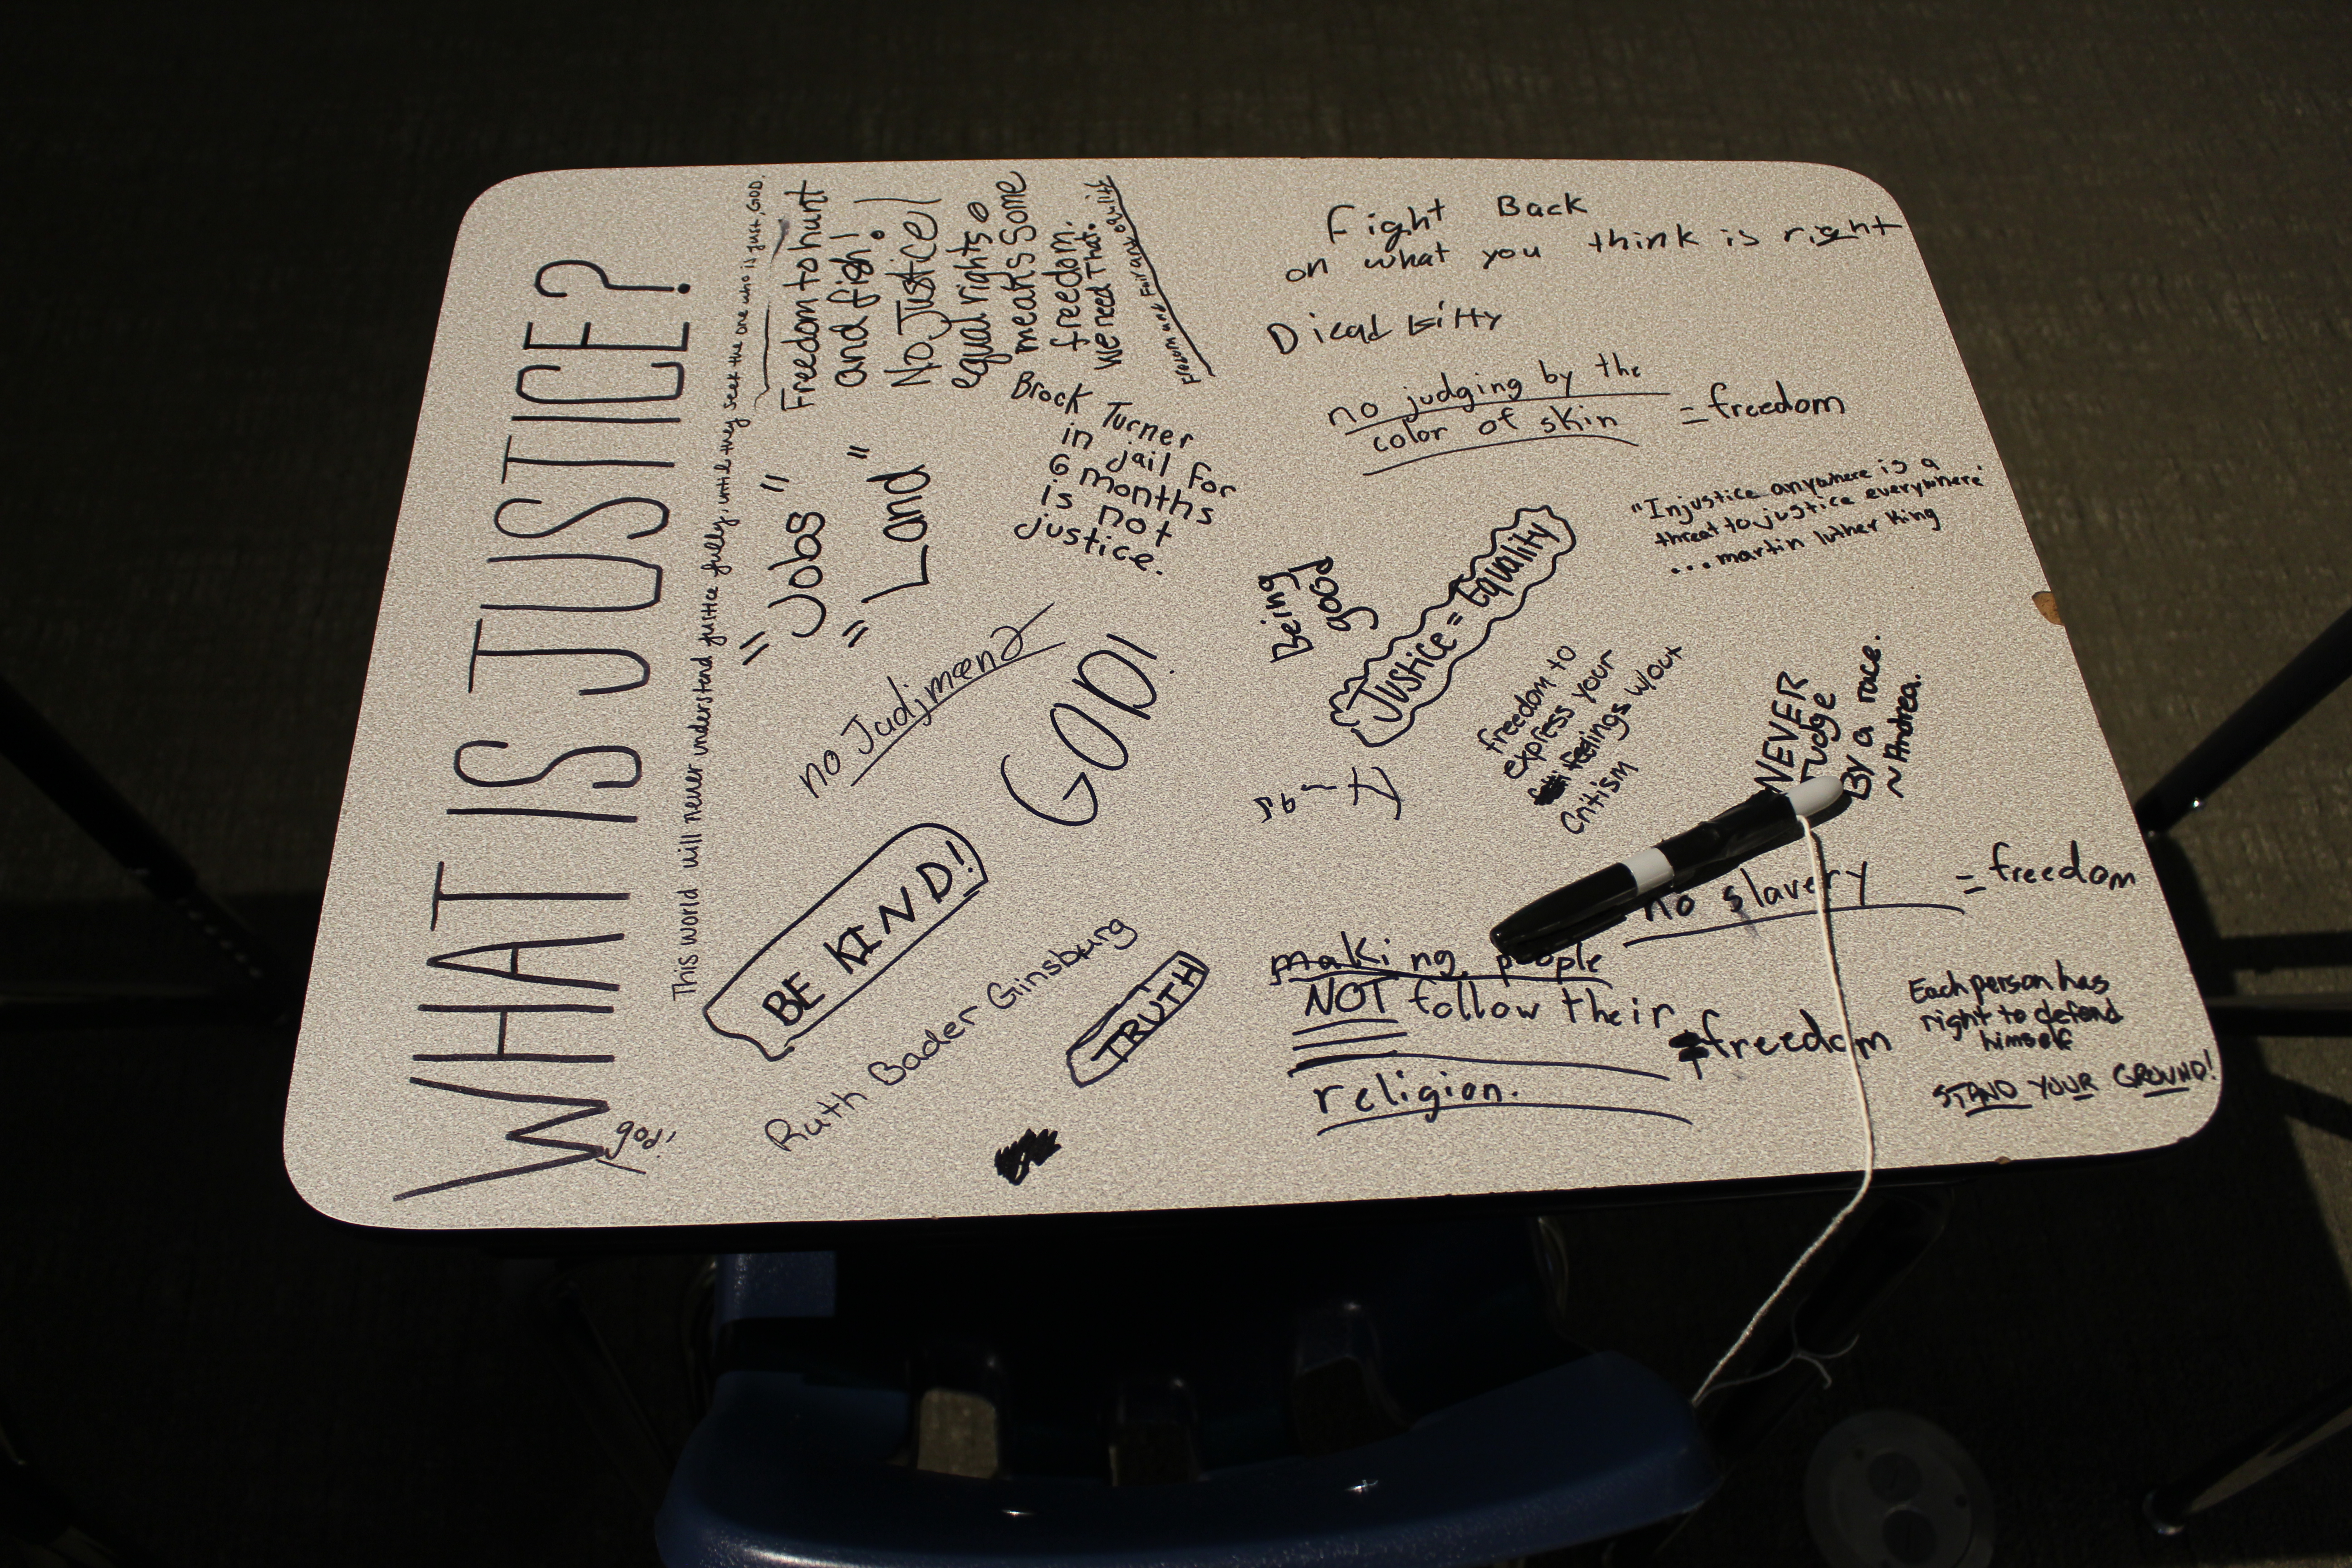 WHAT IS JUSTICE?
god!
This world will never understand justice fully, until they seek the one who is just, GOD.
Freedom to hunt
and fish!
No Justice!
equal rights
means some
freedom.
We need That.
"Jobs"
"Land"
Brock Turner
in jail for
6 months
is not
justice.
no Judjment
GOD!
BE KIND!
Ruth Bader Ginsburg
TRUTH
Fight Back
on what you think is right
no judging by the
color of skin = freedom
"Injustice anywhere is a
threat to justice everywhere"
...martin luther King
Being
good
Justice = Equality
freedom to
express your
feelings w/out
Critism
NEVER
Judge
By a race.
~Andrea.
no slavery = freedom
making people
NOT follow their
religion.
freedom
Each person has
right to defend
himself
STAND YOUR GROUND!